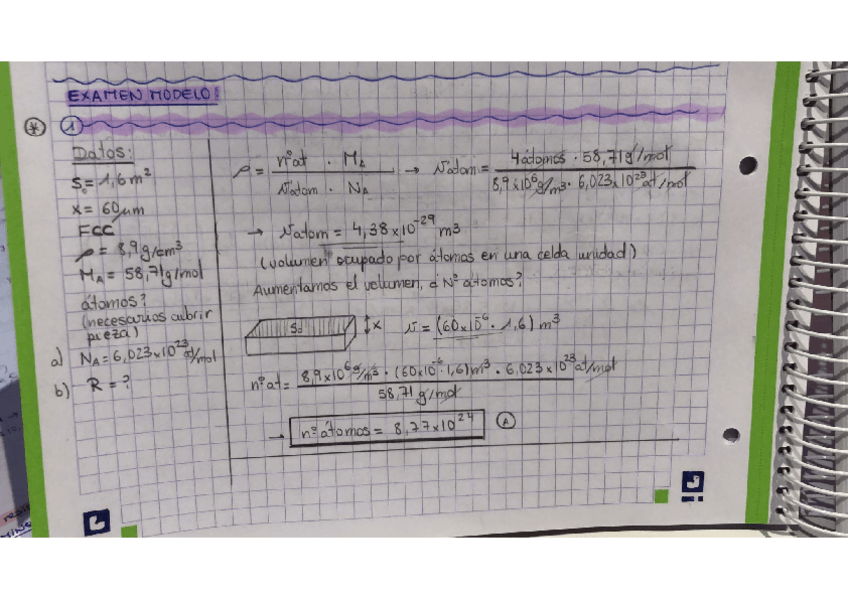 EXAMEN MODELO!
* 1
Datos:
S₀ = 1,6 m²
x = 60 μm
FCC
ρ = 8,9 g/cm³
M_A = 58,71 g/mol
átomos?
(necesarios cubrir
pieza)
a) N_A = 6,023 x 10²³ at/mol
b) R = ?
ρ = nºat · M_A / Vatom · N_A → Vatom = 4 átomos · 58,71 g/mol / 8,9 x 10⁶ g/m³ · 6,023 x 10²³ at/mol
→ Vatom = 4,38 x 10⁻²⁹ m³
(volumen ocupado por átomos en una celda unidad)
Aumentamos el volumen, ¿Nº átomos?
S₀ x V = (60 x 10⁻⁶ · 1,6) m³
nºat = 8,9 x 10⁶ g/m³ · (60 x 10⁻⁶ · 1,6) m³ · 6,023 x 10²³ at/mol / 58,71 g/mol
→ nº átomos = 8,77 x 10²⁴ A